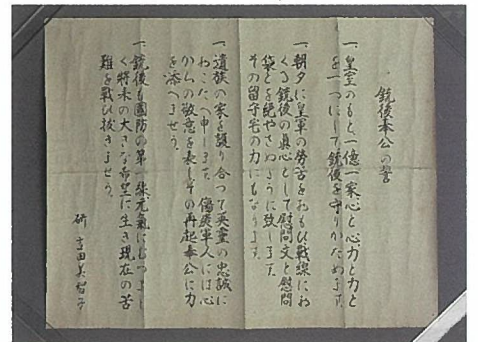 銃後奉公の誓
一、皇室のもと一億一家心と心力と力と
を一つにして銃後を守りかためます
一、朝夕に皇軍の労苦をおもひ戦線にお
くる銃後の真心として慰問文と慰問
袋とを絶やさぬように致します
その留守宅の力にもなります
一、遺族の家を護り合つて英霊の忠誠に
おこたへ申します 傷痍軍人には心
からの敬意を表しその再起奉公に力
を添へませう
一、銃後も國防の第一線元氣に
く将来の大きな希望に生き現在の苦
難を戦ひ抜きませう
研 吉田美智子